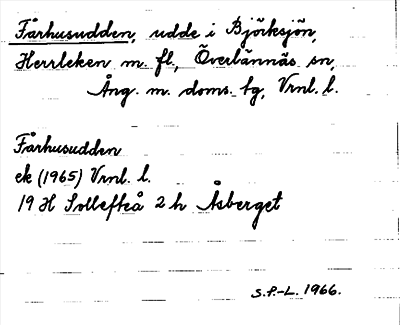 Fårhusudden, udde i Björksjön,
Herrleken m. fl., Överlännäs sn,
Ång. m. doms. tg, Vrnl. l.
Fårhusudden
ek (1965) Vrnl. l.
19 H Sollefteå 2 h Åsberget
S.P.-L. 1966.